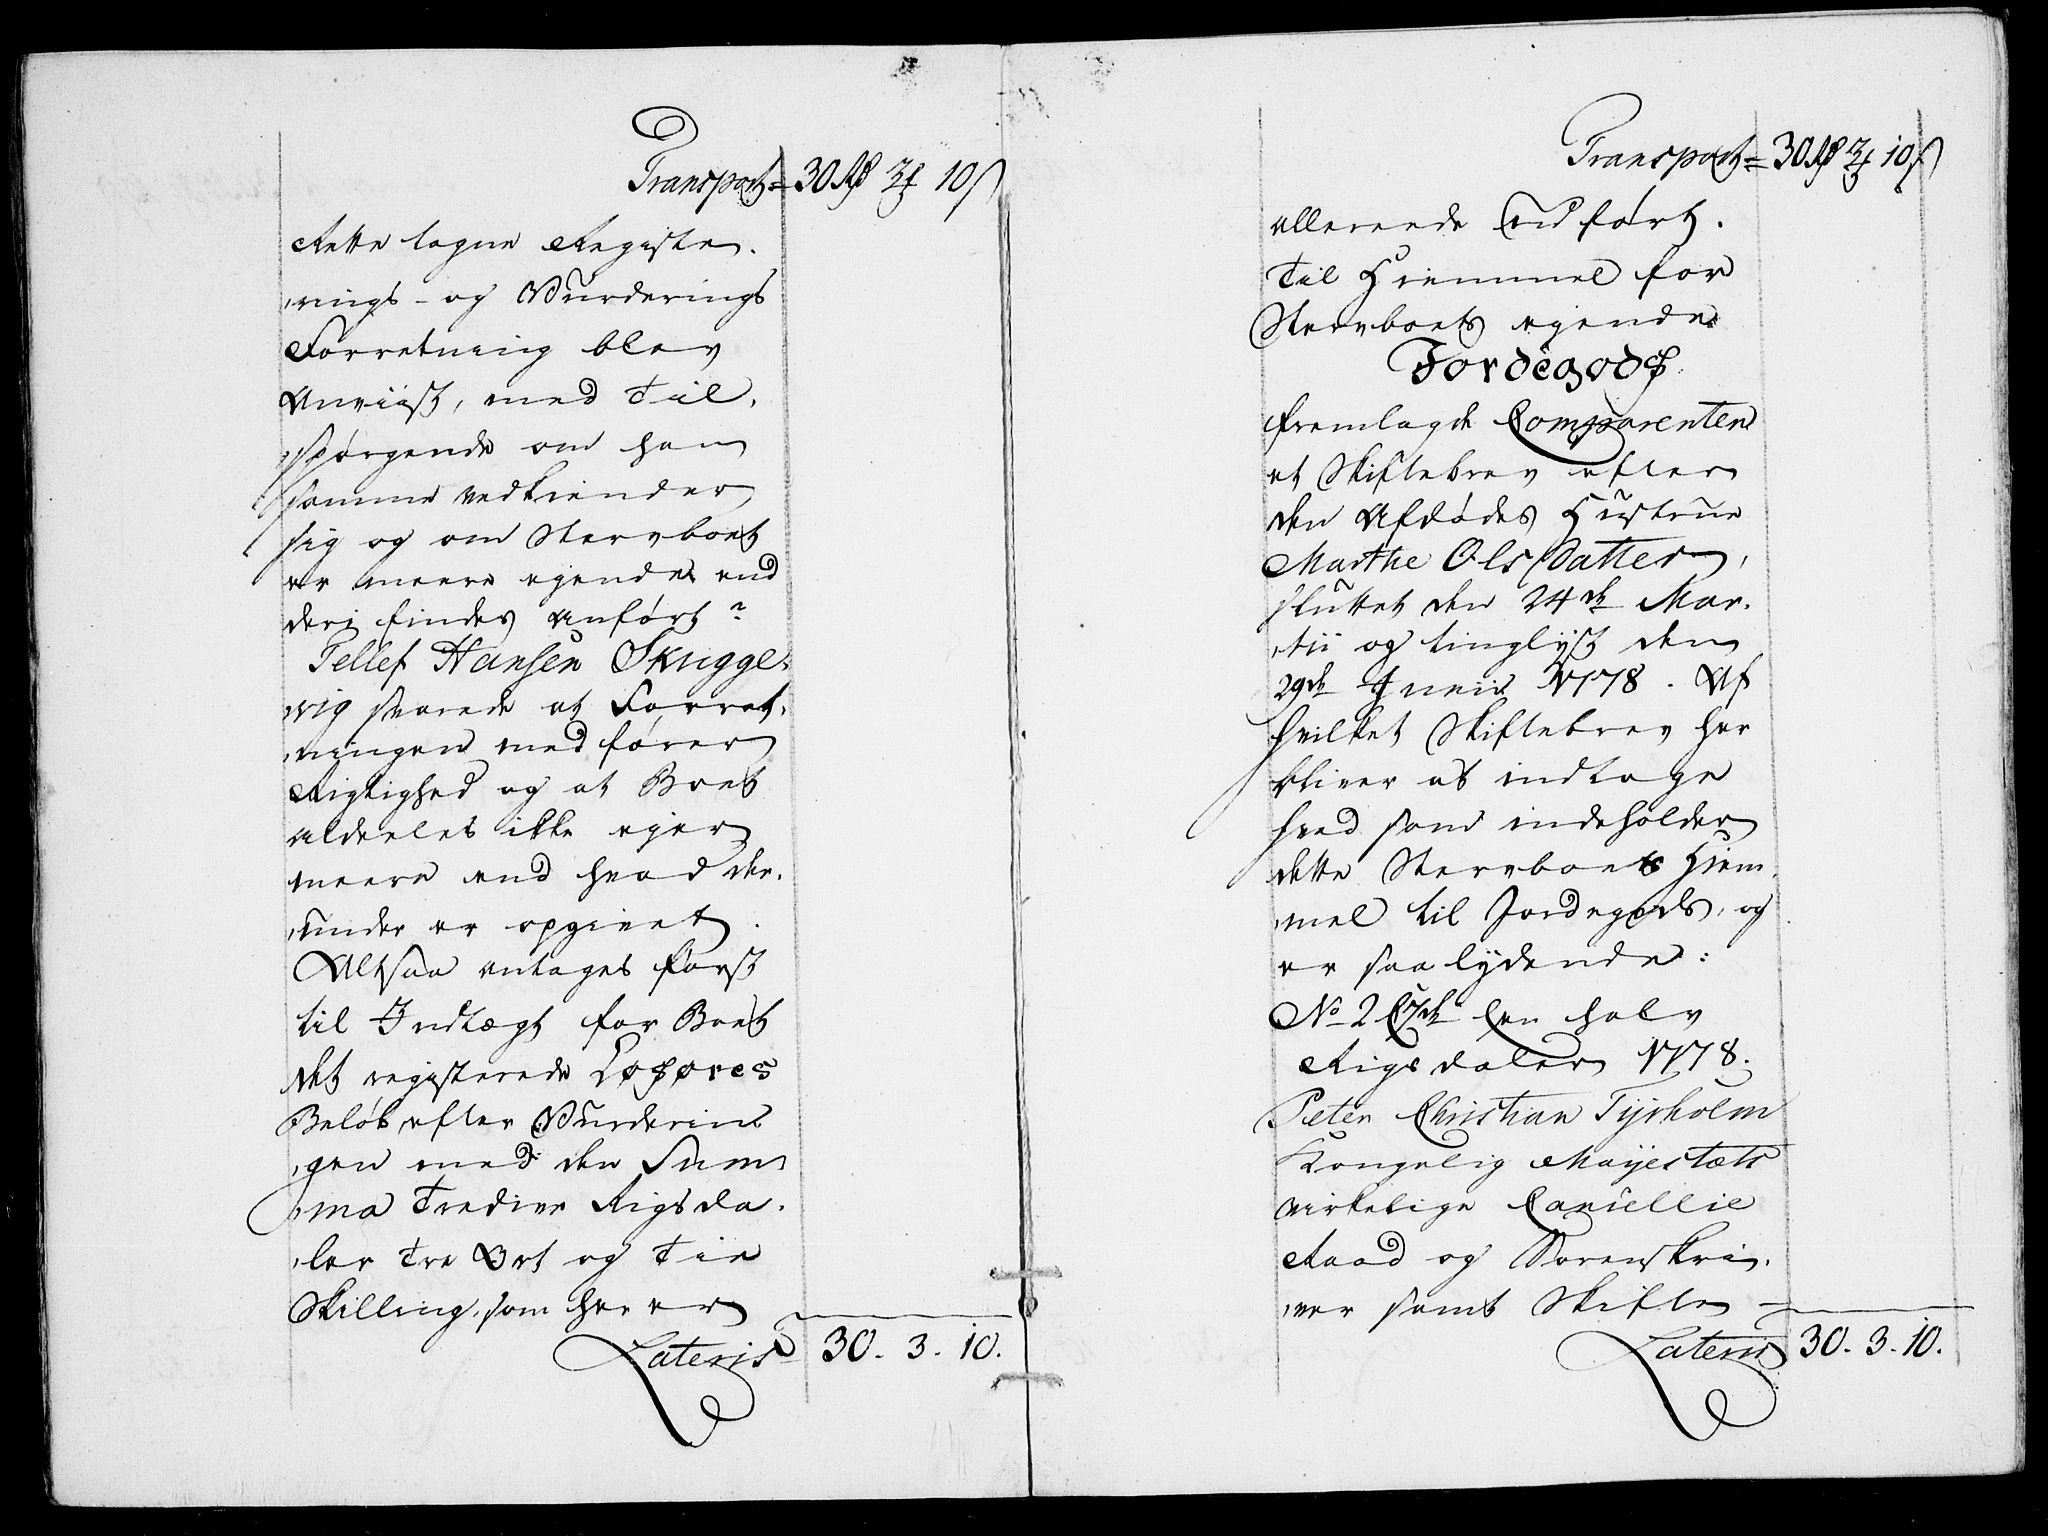 Transport = 30 Rd 3 ₰ 10 s
Rette tagne Registe-
rings- og Vurderings
Forretning blev
Anviist, med Til-
spørgende om han
samme vedkiender
sig og om Stervboet
er meere ejende end
deri findes Anført?
Tellef Hansen Skugge-
vig svarede at Forret-
ningen med fører
Rigtighed og at Boet
aldeeles ikke ejer
meere end hvad der-
under er opgivet.
Altsaa antages først
til Indtægt for Boet
det registerede Løsøres
Beløb efter Vurderin-
gen med den Sum-
ma Tredive Rigsda-
ler Tre Ort og Tie
Skilling, som her er
Lateris 30. 3. 10.
Transport = 30 Rd 3 ₰ 10 s
allereede Udført.
Til Hiemmel for
Stervboets ejende
Jordegods
fremlagde Comparenten
et Skiftebrev efter
den Afdødes Hustrue
Marthe Ols Datter,
sluttet den 24de Mar-
tii og tinglyst den
29de Junii 1778. Af
hvilket Skiftebrev her
bliver at indtage
hvad som indeholder
dette Stervboets Hiem-
mel til Jordegods, og
er saa lydende:
No 2 En halv
Rigsdaler 1778.
Peter Christian Tyrholm
Kongelig Mayestæts
virkelige Cancellie
Raad og Sorenskri-
ver samt Skifte
Lateris 30. 3. 10.